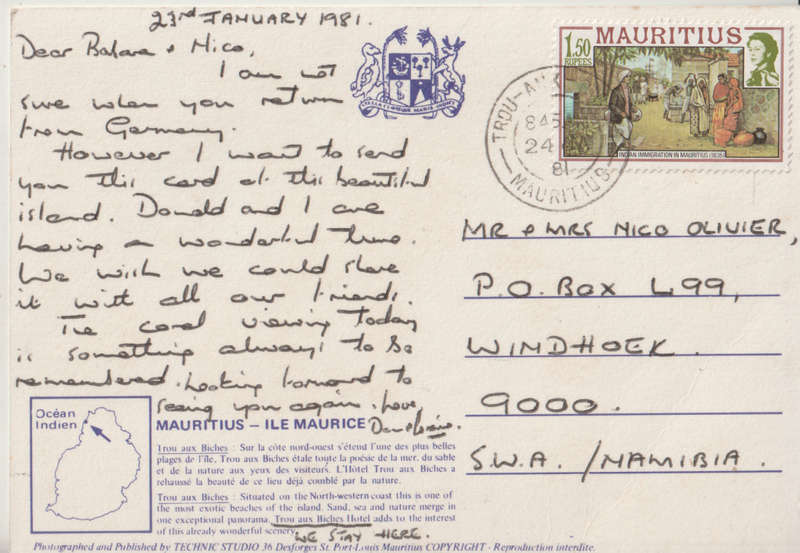 23rd JANUARY 1981.
Dear Babara & Nico,
I am not
sure when you return
from Germany.
However I want to send
you this card of this beautiful
island. Donald and I are
having a wonderful time.
We wish we could share
it with all our friends.
The coral viewing today
is something always to be
remembered. Looking forward to
seeing you again. Love
MAURITIUS
1.50
RUPEES
INDIAN IMMIGRATION IN MAURITIUS (1835)
TROU-AU
845
24
81
MAURITIUS
MR & MRS NICO OLIVIER,
P.O. BOX 499,
WINDHOEK.
9000.
S.W.A. /NAMIBIA.
Océan
Indien
MAURITIUS – ILE MAURICE
Trou aux Biches : Sur la côte nord-ouest s'étend l'une des plus belles
plages de l'île, Trou aux Biches étale toute la poésie de la mer, du sable
et de la nature aux yeux des visiteurs. L'Hôtel Trou aux Biches a
rehaussé la beauté de ce lieu déjà comblé par la nature.
Trou aux Biches : Situated on the North-western coast this is one of
the most exotic beaches of the island. Sand, sea and nature merge in
one exceptional panorama. Trou aux Biches Hotel adds to the interest
of this already wonderful scenery.
WE STAY HERE.
Photographed and Published by TECHNIC STUDIO 36 Desforges St. Port-Louis Mauritius COPYRIGHT - Reproduction interdite.